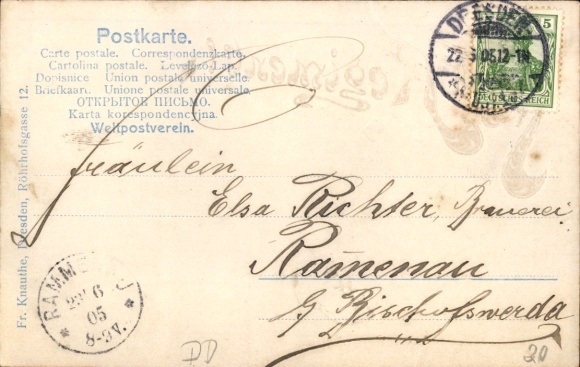 Postkarte.
Carte postale. Correspondenzkarte.
Cartolina postale. Levelező-Lap.
Dopisnice Union postale universelle.
Briefkaart. Unione postale universale.
ОТКРЫТОЕ ПИСЬМО.
Karta korespondencyjna.
Weltpostverein.
Fr. Knauthe, Dresden, Röhrhofsgasse 12.
DRESDEN
5
DEUTSCHES REICH
Fräulein
Elsa Richter, Brauerei
Ramenau
b/ Bischofswerda
RAMM
6
05
8-9V.
DD
20